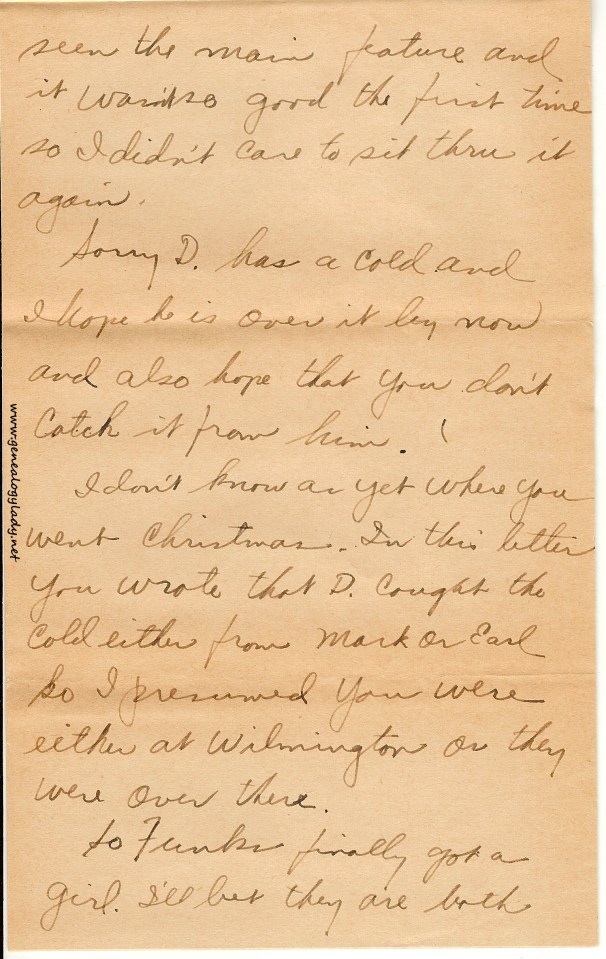 seen the main feature and
it wasn't so good the first time
so I didn't care to sit thru it
again.
Sorry D. has a cold and
I hope he is over it by now
and also hope that you don't
catch it from him.
I don't know as yet where you
went Christmas. In this letter
you wrote that D. caught the
cold either from Mark or Earl
so I presumed you were
either at Wilmington or they
were over there.
So Funks finally got a
girl. I'll bet they are both
www.genealogylady.net